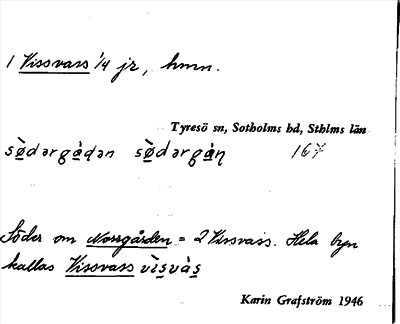 1 Vissvass 1/4 jr, hmn.
Tyresö sn, Sotholms hd, Sthlms län
sø̀dərgàḍən sø̀dərgàṇ 167
Söder om Norrgården = 2 Vissvass. Hela byn
kallas Vissvass vìs̩vàs̩
Karin Grafström 1946